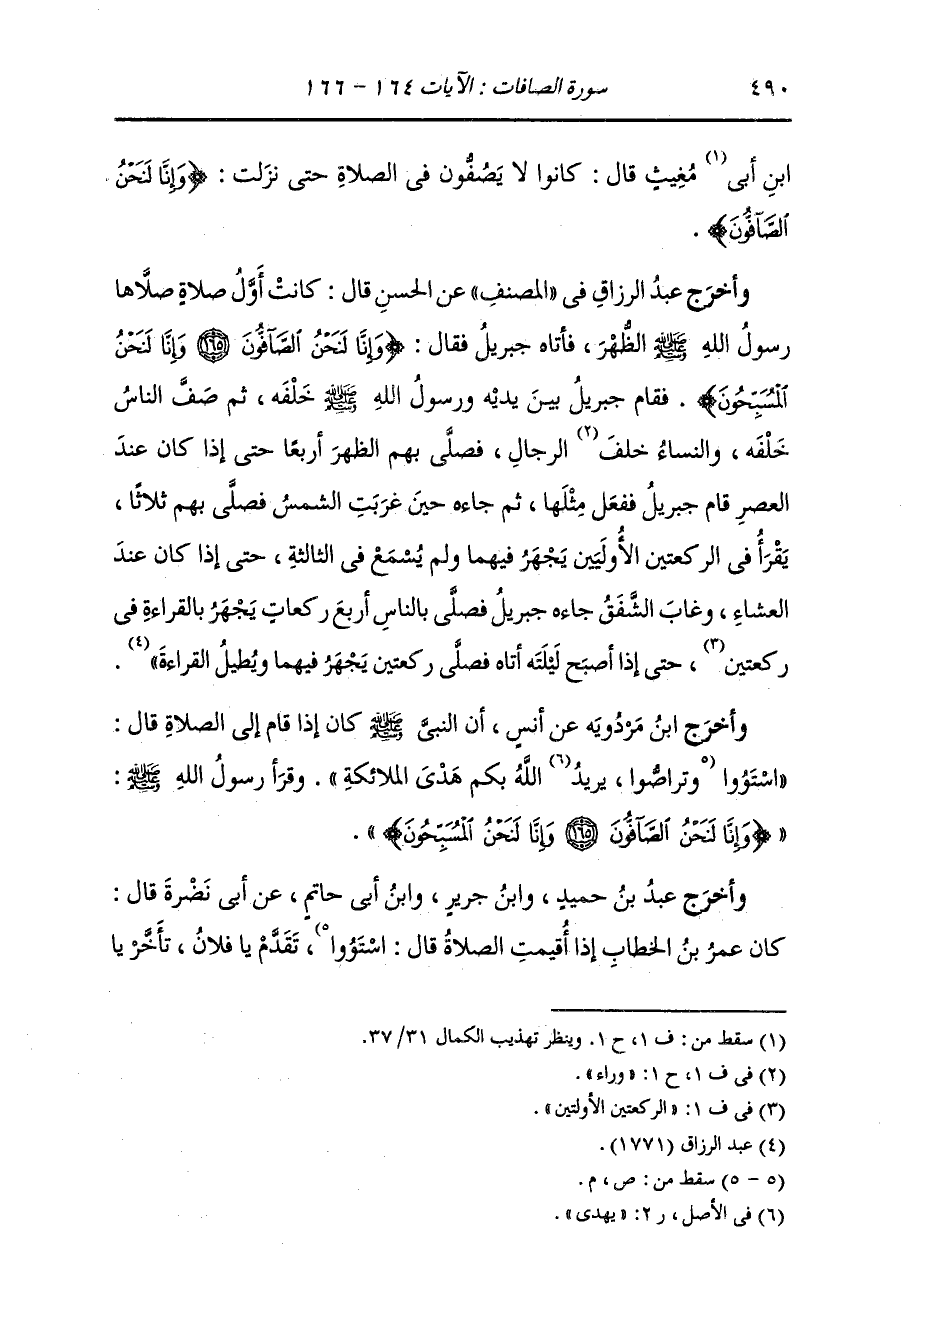 ٤٩٠ سورة الصافات : الآيات ١٦٤ – ١٦٦
ابنِ أبى(١) مُغِيثٍ قال : كانوا لا يَصُفُّون فى الصلاةِ حتى نزَلت : ﴿وَإِنَّا لَنَحْنُ
ٱلصَّآفُّونَ﴾ .
وأخرَج عبدُ الرزاقِ فى «المصنفِ» عن الحسنِ قال : كانتْ أَوَّلُ صلاةٍ صلَّاها
رسولُ اللهِ ﷺ الظُّهْرَ ، فأتاه جبريلُ فقال : ﴿وَإِنَّا لَنَحْنُ ٱلصَّآفُّونَ ١٦٥ وَإِنَّا لَنَحْنُ
ٱلْمُسَبِّحُونَ﴾ . فقام جبريلُ بينَ يديْه ورسولُ اللهِ ﷺ خَلْفَه ، ثم صَفَّ الناسُ
خَلْفَه ، والنساءُ خلفَ(٢) الرجالِ ، فصلَّى بهم الظهرَ أربعًا حتى إذا كان عندَ
العصرِ قام جبريلُ ففعَل مِثْلَها ، ثم جاءه حينَ غرَبَتِ الشمسُ فصلَّى بهم ثلاثًا ،
يَقْرَأُ فى الركعتين الأُولَيَين يَجْهَرُ فيهما ولم يُسْمَعْ فى الثالثةِ ، حتى إذا كان عندَ
العشاءِ ، وغابَ الشَّفَقُ جاءه جبريلُ فصلَّى بالناسِ أربعَ ركعاتٍ يَجْهَرُ بالقراءةِ فى
ركعتين(٣) ، حتى إذا أصبَح لَيْلَتَه أتاه فصلَّى ركعتين يَجْهَرُ فيهما ويُطيلُ القراءةَ»(٤) .
وأخرَج ابنُ مَرْدُويَه عن أنسٍ ، أن النبىَّ ﷺ كان إذا قام إلى الصلاةِ قال :
«اسْتَوُوا (٥وتراصُّوا ، يريدُ(٦) اللَّهُ بكم هَدْىَ الملائكةِ» . وقرَأ رسولُ اللهِ ﷺ :
« ﴿وَإِنَّا لَنَحْنُ ٱلصَّآفُّونَ ١٦٥ وَإِنَّا لَنَحْنُ ٱلْمُسَبِّحُونَ﴾ » .
وأخرَج عبدُ بنُ حميدٍ ، وابنُ جريرٍ ، وابنُ أبى حاتمٍ ، عن أبى نَضْرةَ قال :
كان عمرُ بنُ الخطابِ إذا أُقيمتِ الصلاةُ قال : اسْتَوُوا٥) ، تَقَدَّمْ يا فلانُ ، تأَخَّرْ يا
(١) سقط من : ف ١، ح ١. وينظر تهذيب الكمال ٣١/ ٣٧.
(٢) فى ف ١، ح ١: « وراء» .
(٣) فى ف ١: « الركعتين الأولتين» .
(٤) عبد الرزاق (١٧٧١) .
(٥ – ٥) سقط من : ص ، م .
(٦) فى الأصل ، ر ٢: « يهدى» .